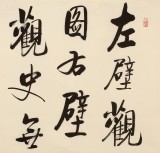 左壁觀
圖右壁
觀史無